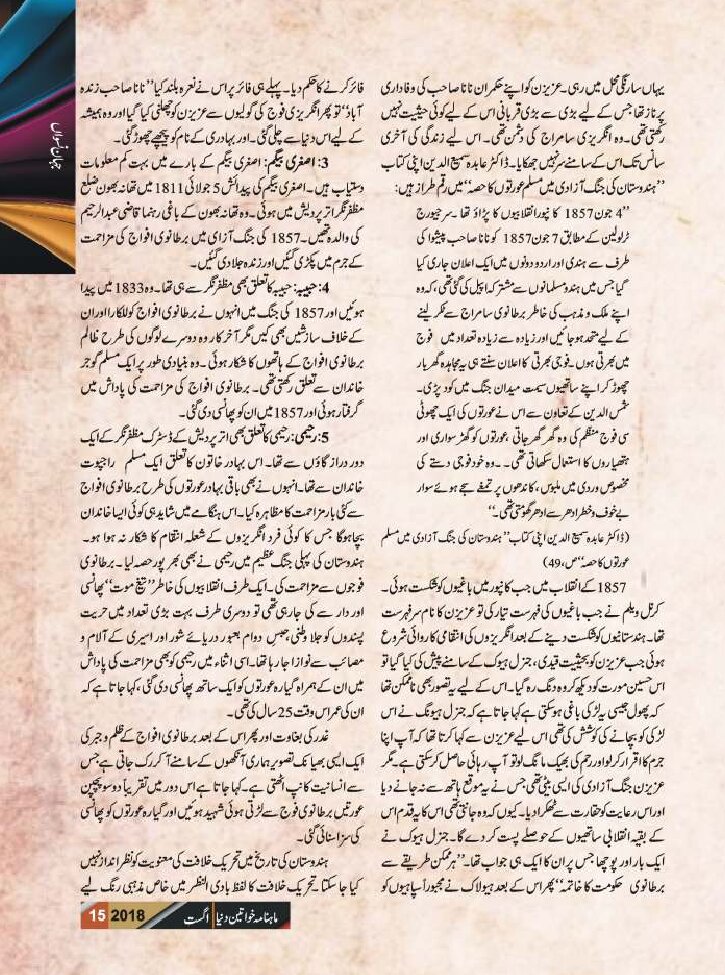 جہان نسواں
یہاں سارنگی محل میں رہی۔ عزیزن کو اپنے حکمران نانا صاحب کی وفاداری
پر ناز تھا جس کے لیے بڑی سے بڑی قربانی اس کے لیے کوئی حیثیت نہیں
رکھتی تھی۔ وہ انگریزی سامراج کی دشمن تھی۔ اس لیے زندگی کی آخری
سانس تک اس کے سامنے سر نہیں جھکایا۔ ڈاکٹر عابدہ سمیع الدین اپنی کتاب
”ہندوستان کی جنگ آزادی میں مسلم عورتوں کا حصہ“ میں رقم طراز ہیں:
”4 جون 1857 کا نپور انقلابیوں کا پڑاؤ تھا۔ سر جیورج
ٹرلولین کے مطابق 7 جون 1857 کو نانا صاحب پیشوا کی
طرف سے ہندی اور اردو دونوں میں ایک اعلان جاری کیا
گیا جس میں ہندو مسلمانوں سے مشترکہ اپیل کی گئی تھی، کہ وہ
اپنے ملک و مذہب کی خاطر برطانوی سامراج سے ٹکر لینے
کے لیے متحد ہو جائیں اور زیادہ سے زیادہ تعداد میں فوج
میں بھرتی ہوں۔ فوجی بھرتی کا اعلان سنتے ہی یہ مجاہدہ گھر بار
چھوڑ کر اپنے ساتھیوں سمیت میدان جنگ میں کود پڑی۔
شمس الدین کے تعاون سے اس نے عورتوں کی ایک چھوٹی
سی فوج منظم کی وہ گھر گھر جاتی عورتوں کو گھڑ سواری اور
ہتھیاروں کا استعمال سکھاتی تھی۔ ۔ وہ خود فوجی دستے کی
مخصوص وردی میں ملبوس، کاندھوں پر تمغے سجے ہوئے سوار
بے خوف و خطر ادھر سے ادھر گھومتی تھی۔“
(ڈاکٹر عابدہ سمیع الدین اپنی کتاب ”ہندوستان کی جنگ آزادی میں مسلم
عورتوں کا حصہ“ ص، 49)
1857 کے انقلاب میں جب کانپور میں باغیوں کو شکست ہوئی۔
کرنل ویلم نے جب باغیوں کی فہرست تیار کی تو عزیزن کا نام سر فہرست
تھا۔ ہندستانیوں کو شکست دینے کے بعد انگریزوں کی انتقامی کاروائی شروع
ہوئی جب عزیزن کو بحیثیت قیدی، جنرل ہیوک کے سامنے پیش کی گیا تو
اس حسین مورت کو دیکھ کر وہ دنگ رہ گیا۔ اس کے لیے یہ تصور بھی ناممکن تھا
کہ پھول جیسی یہ لڑکی باغی ہو سکتی ہے کہا جاتا ہے کہ جنرل ہیونگ نے اس
لڑکی کو بچانے کی کوشش کی تھی اس لیے عزیزن سے کہا کرتا تھا کہ آپ اپنا
جرم کا اقرار کر لو اور رحم کی بھیک مانگ لو تو آپ رہائی حاصل کر سکتی ہے۔ مگر
عزیزن جنگ آزادی کی ایسی بیٹی تھی جس نے یہ موقع ہاتھ سے نہ جانے دیا
اور اس رعایت کو حقارت سے ٹھکرا دیا۔ کیوں کہ وہ جانتی تھی اس کا یہ قدم اس
کے بقیہ انقلابی ساتھیوں کے حوصلے پست کر دے گا۔ جنرل ہیوک نے
ایک بار اور پوچھا جس پر ان کا ایک ہی جواب تھا۔ ”ہر ممکن طریقے سے
برطانوی حکومت کا خاتمہ“ پھر اس کے بعد ہیولاک نے مجبوراً سپاہیوں کو
فائر کرنے کا حکم دیا۔ پہلے ہی فائر پر اس نے نعرہ بلند کیا ”نانا صاحب زندہ
آباد“ تو پھر انگریزی فوج کی گولیوں سے عزیزن کو چھلنی کیا گیا اور وہ ہمیشہ
کے لیے اس دنیا سے چلی گئی۔ اور بہادری کے نام کو پیچھے چھوڑ گئی۔
3: اصغری بیگم: اصغری بیگم کے بارے میں بہت کم معلومات
دستیاب ہیں۔ اصغری بیگم کی پیدائش 5 جولائی 1811 میں تھانہ بھون ضلع
مظفر نگر اتر پردیش میں ہوئی۔ وہ تھانہ بھون کے باغی رہنما قاضی عبدالرحیم
کی والدہ تھیں۔ 1857 کی جنگ آزای میں برطانوی افواج کی مزاحمت
کے جرم میں پکڑی گئیں اور زندہ جلا دی گئیں۔
4: حبیبہ: حبیبہ کا تعلق بھی مظفر نگر سے ہی تھا۔ وہ 1833 میں پیدا
ہوئیں اور 1857 کی جنگ میں انہوں نے برطانوی افواج کو للکارا اور ان
کے خلاف سازشیں بھی کیں مگر آخر کار وہ دوسرے لوگوں کی طرح ظالم
برطانوی افواج کے ہاتھوں کا شکار ہوئی۔ وہ بنیادی طور پر ایک مسلم گوجر
خاندان سے تعلق رکھتی تھی۔ برطانوی افواج کی مزاحمت کی پاداش میں
گرفتار ہوئی اور 1857 میں ان کو پھانسی دی گئی۔
5: رحیمی: رحیمی کا تعلق بھی اتر پردیش کے ڈسٹرک مظفر نگر کے ایک
دور دراز گاؤں سے تھا۔ اس بہادر خاتون کا تعلق ایک مسلم راجپوت
خاندان سے تھا۔ انہوں نے بھی باقی بہادر عورتوں کی طرح برطانوی افواج
سے کئی بار مزاحمت کا مظاہرہ کیا۔ اس ہنگامے میں شاید ہی کوئی ایسا خاندان
بچا ہوگا جس کا کوئی فرد انگریزوں کے شعلہ انتقام کا شکار نہ ہوا ہو۔
ہندوستان کی پہلی جنگ عظیم میں رحیمی نے بھی بھر پور حصہ لیا۔ برطانوی
فوجوں سے مزاحمت کی۔ ایک طرف انقلابیوں کی خاطر ”تیغ موت“ پھانسی
اور دار سے کی جا رہی تھی تو دوسری طرف بہت بڑی تعداد میں حریت
پسندوں کو جلا وطنی، حبس دوام بعبور دریائے شور اور اسیری کے آلام و
مصائب سے نوازا جا رہا تھا۔ اسی اثناء میں رحیمی کو بھی مزاحمت کی پاداش
میں ان کے ہمراہ گیارہ عورتوں کو ایک ساتھ پھانسی دی گئی، کہا جاتا ہے کہ
ان کی عمر اس وقت 25 سال کی تھی۔
غدر کی بغاوت اور پھر اس کے بعد برطانوی افواج کے ظلم و جبر کی
ایک ایسی بھیانک تصویر ہماری آنکھوں کے سامنے آ کر رک جاتی ہے جس
سے انسانیت کانپ اٹھتی ہے۔ کہا جاتا ہے اس دور میں تقریباً دو سو پچپن
عورتیں برطانوی فوج سے لڑتی ہوئی شہید ہوئیں اور گیارہ عورتوں کو پھانسی
کی سزا سنائی گئی۔
ہندوستان کی تاریخ میں تحریک خلافت کی معنویت کو نظر انداز نہیں
کیا جا سکتا۔ تحریک خلافت کا لفظ بادی النظر میں خاص مذہبی رنگ لیے
ماہنامہ خواتین دنیا | اگست 2018 15